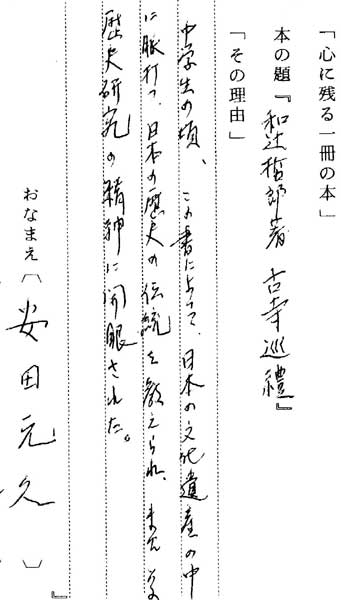 「心に残る一冊の本」
本の題『和辻哲郎著 古寺巡禮』
「その理由」
中学生の頃、この書によって、日本の文化遺産の中
に脈打つ、日本の歴史の伝統を教えられ、また
歴史研究の精神に開眼された。
おなまえ〔安田元久〕』